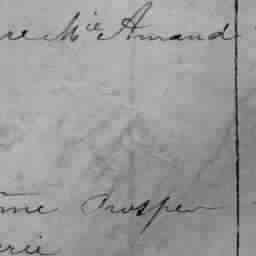 re Mie Amand
me Prosper
erie